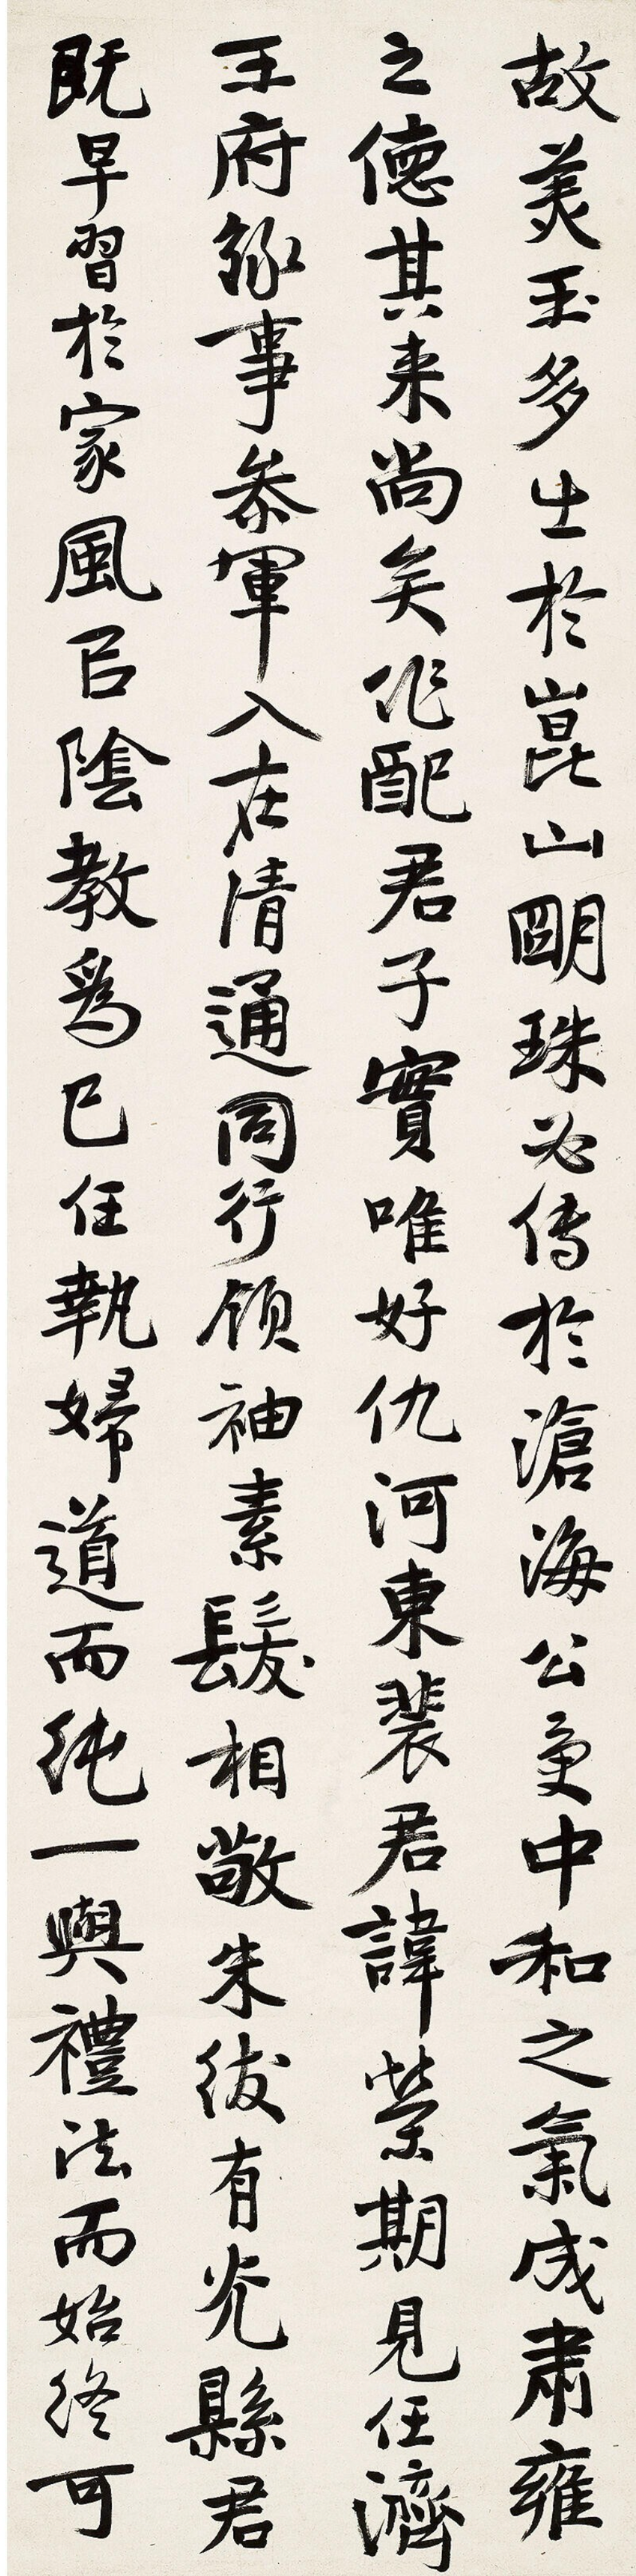 故美玉多出於崑山朙珠必传於滄海公受中和之氣成肅雍
之德其来尚矣作配君子實唯好仇河東裴君諱榮期見任濟
王府錄事叅軍入在清通同行領袖素髮相敬朱紱有光縣君
既早習於家風㠯陰教爲己任執婦道而純一與禮法而始終可